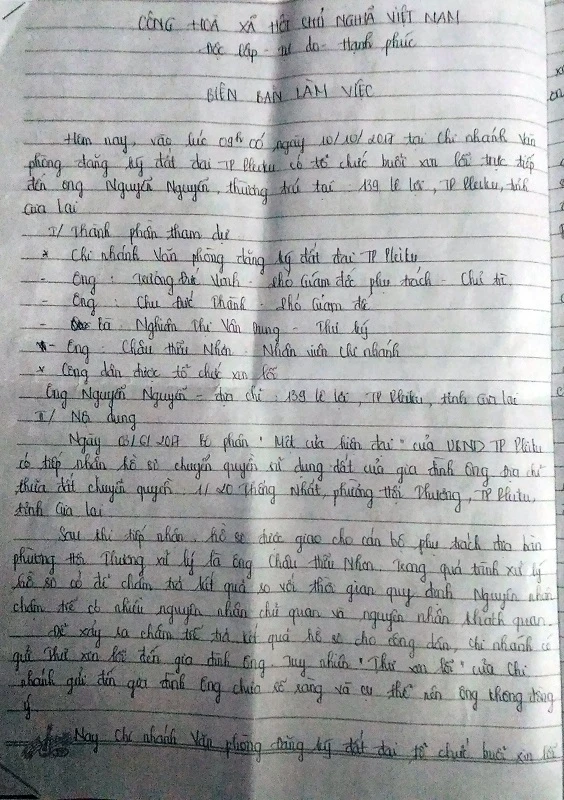 CỘNG HOÀ XÃ HỘI CHỦ NGHĨA VIỆT NAM
Độc lập - tự do - Hạnh phúc
BIÊN BẢN LÀM VIỆC
Hôm nay, vào lúc 09h có ngày 10/10/2017 tại Chi nhánh Văn
phòng đăng ký đất đai TP Pleiku có tổ chức buổi xin lỗi trực tiếp
đến ông Nguyễn Nguyễn, thường trú tại: 139 lê lợi, TP Pleiku, tỉnh
Gia lai
I/ Thành phần tham dự
* Chi nhánh Văn phòng đăng ký đất đai TP Pleiku
- Ông: Trương Đức Vinh - Phó Giám đốc phụ trách - Chủ trì.
- Ông: Chu Đức Thành - Phó Giám đố
- Bà: Nghiêm Thị Vân Dung - Thư ký
- Ông: Châu Hữu Nhơn. Nhân viên chi nhánh
* Công dân được tổ chức xin lỗi
Ông Nguyễn Nguyễn - địa chỉ: 139 lê lợi, TP Pleiku, tỉnh Gia lai
II/ Nội dung
Ngày 06/6/2017 Bộ phận "Một cửa hiện đại" của UBND TP Pleiku
có tiếp nhận hồ sơ chuyển quyền sử dụng đất của gia đình ông. Địa chỉ
thửa đất chuyển quyền: 1/20 Thống Nhất, phường Hội Thương, TP Pleiku,
tỉnh Gia lai
Sau khi tiếp nhận, hồ sơ được giao cho cán bộ phụ trách địa bàn
phường Hội Thương xử lý là ông Châu Hữu Nhơn. Trong quá trình xử lý
hồ sơ có để chậm trả kết quả so với thời gian quy định. Nguyên nhân
chậm trễ có nhiều nguyên nhân chủ quan và nguyên nhân khách quan.
Để xảy ra chậm trễ trả kết quả hồ sơ cho công dân, chi nhánh có
gửi Thư xin lỗi đến gia đình ông. Tuy nhiên "Thư xin lỗi" của Chi
nhánh gửi đến gia đình ông chưa rõ ràng và cụ thể nên ông không đồng
ý
Nay Chi nhánh Văn phòng Đăng ký đất đai tổ chức buổi xin lỗi